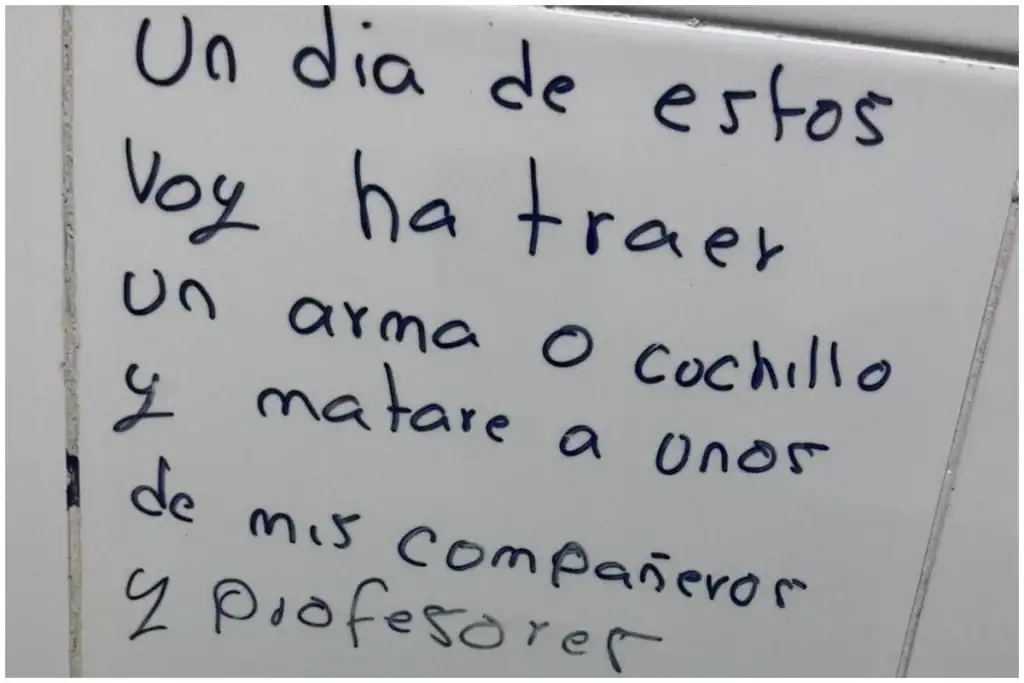 Un dia de estos
Voy ha traer
un arma o cochillo
y matare a unos
de mis compañeros
y profesores